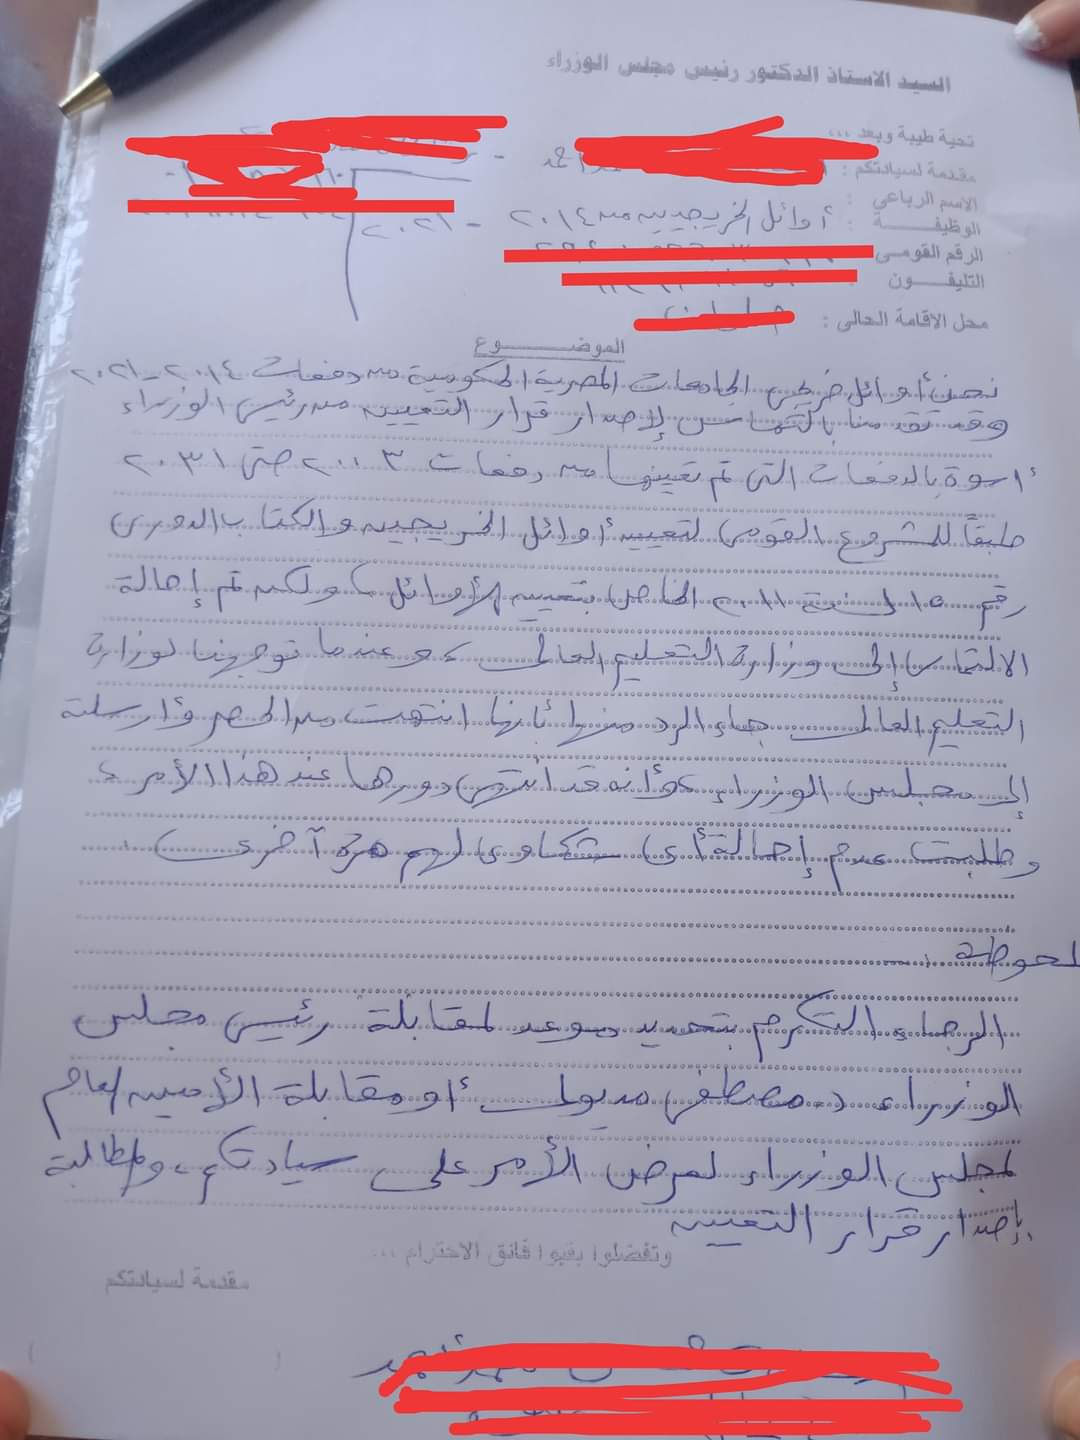 السيد الاستاذ الدكتور رئيس مجلس الوزراء
تحية طيبة وبعد ,,,
مقدمة لسيادتكم :
الاسم الرباعى :
الوظيفــــة : أوائل الخريجيين من ٢٠١٤ - ٢٠٢١
الرقم القومى
التليفــون :
محل الاقامة الحالى :
الموضــــــوع
نحن أوائل خريجى الجامعات المصرية الحكومية من دفعات ٢٠١٤ - ٢٠٢١
وقد تقدمنا بالتماس لإصدار قرار التعيين من رئيس الوزراء
أسوة بالدفعات التى تم تعيينها من دفعات ٢٠٠٣ حتى ٢٠١٣
طبقاً للمشروع القومى لتعيين أوائل الخريجين والكتاب الدورى
رقم ١٥ لسنة ٢٠١١ الخاص بتعيين الأوائل، ولكن تم إحالة
الالتماس إلى وزارة التعليم العالى، وعندما توجهنا لوزارة
التعليم العالى جاء الرد منها بأنها انتهت من الحصر وأرسلته
إلى مجلس الوزراء، وأنه قد انتهى دورها عند هذا الأمر،
وطلبت عدم إحالة أى شكاوى لهم مرة آخرى.
ملحوظة :-
الرجاء التكرم بتحديد موعد لمقابلة رئيس مجلس
الوزراء د. مصطفى مدبولى أو مقابلة الأمين العام
لمجلس الوزراء لعرض الأمر على سيادتكم، والمطالبة
بإصدار قرار التعيين
وتفضلوا بقبول فائق الاحترام ,,,
مقدمة لسيادتكم